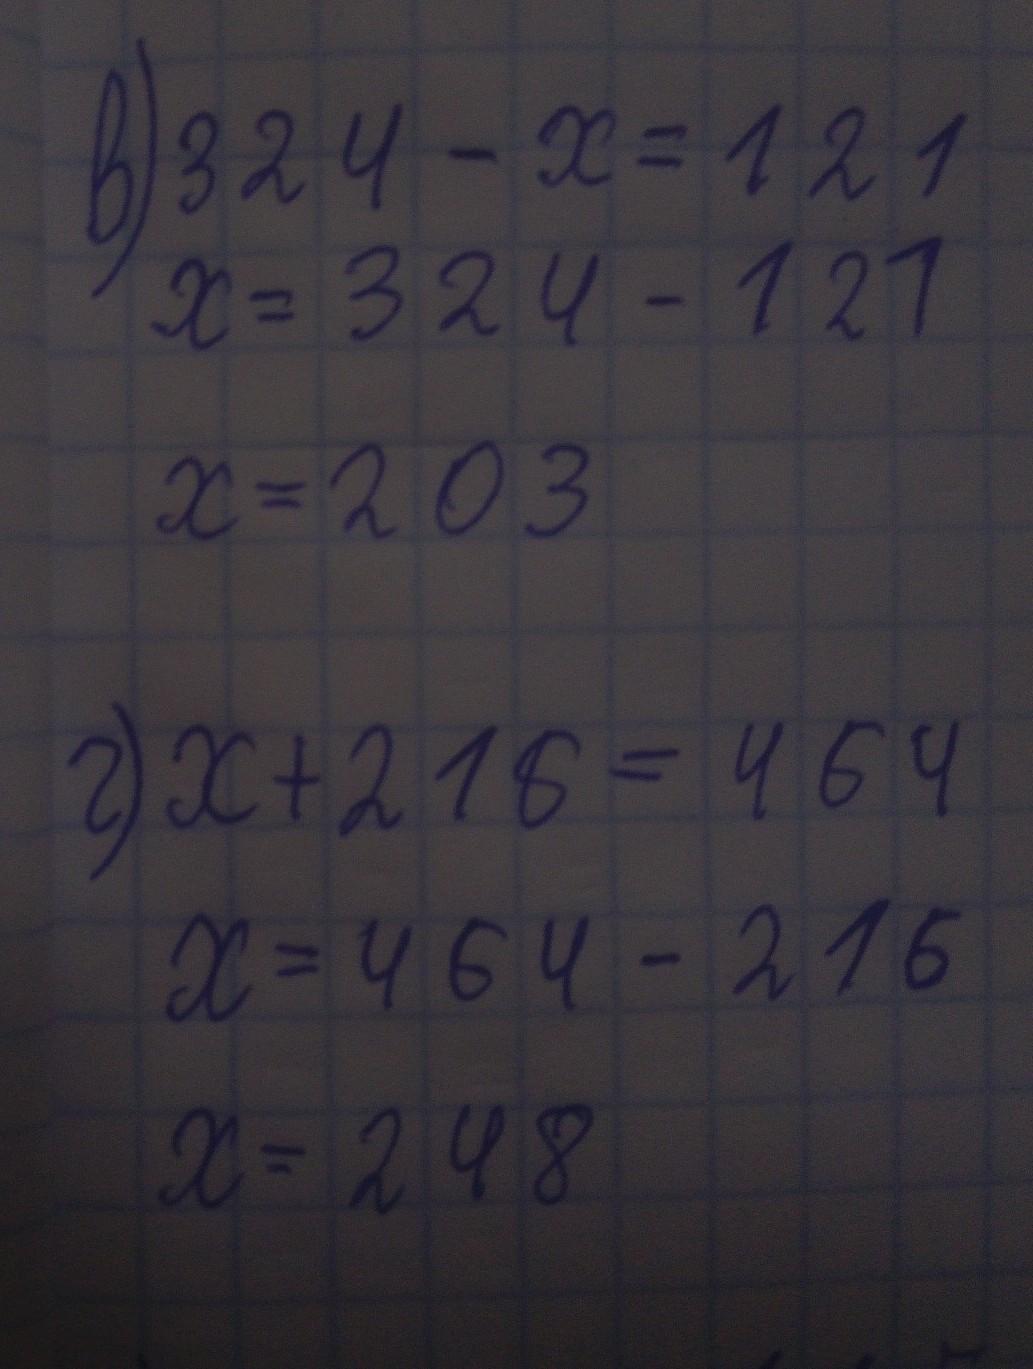 в) 324 - x = 121
x = 324 - 121
x = 203
г) x + 216 = 464
x = 464 - 216
x = 248